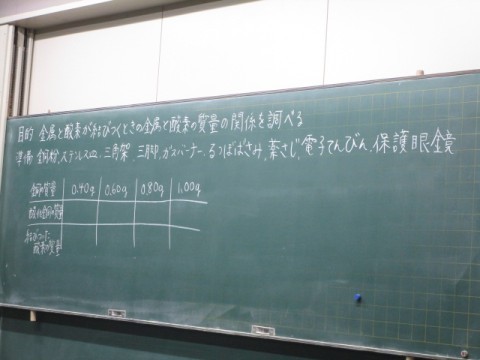 目的 金属と酸素が結びつくときの金属と酸素の質量の関係を調べる
準備 銅粉、ステンレス皿、三角架、三脚、ガスバーナー、るつぼばさみ、薬さじ、電子てんびん、保護眼鏡
銅の質量 0.40g 0.60g 0.80g 1.00g
銅の質量
結びついた
酸素の質量